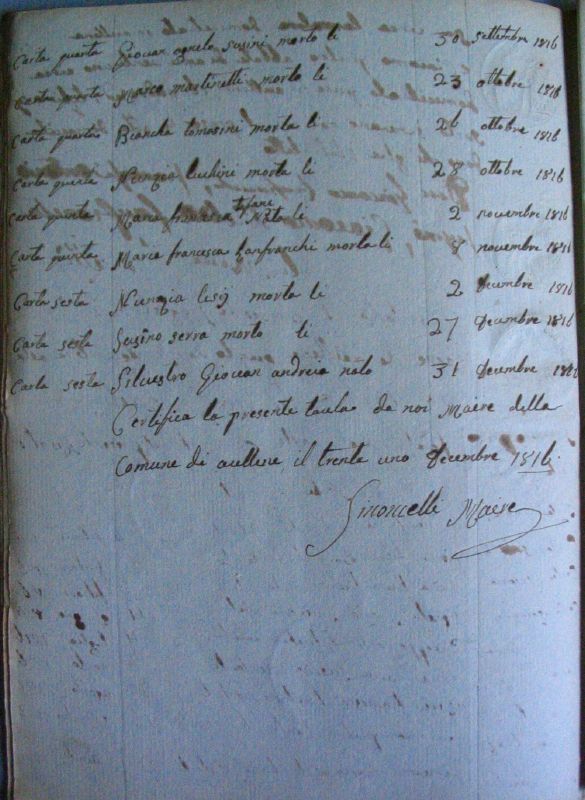 Carta quarta Giovan agnelo susini morto li 30 settembre 1816
Carta quarta Marco martinetti morto li 23 ottobre 1816
Carta quarta Biancha tomasini morta li 26 ottobre 1816
Carta quinta Nunzia lucchini morta li 28 ottobre 1816
Carta quinta Maria francesca Nata li 2 novembre 1816
Carta quinta Maria francesca lanfranchi morta li 8 novembre 1816
Carta sesta Nunzia morta li 2 decembre 1816
Carta sesta Susino serra morto li 27 decembre 1816
Carta sesta Silvestro Giovan andreia nato 31 decembre 1816
Certifica la presente taula da noi Maire della
Comune di aullene, il trenta uno decembre 1816.
Simoncelli Maire